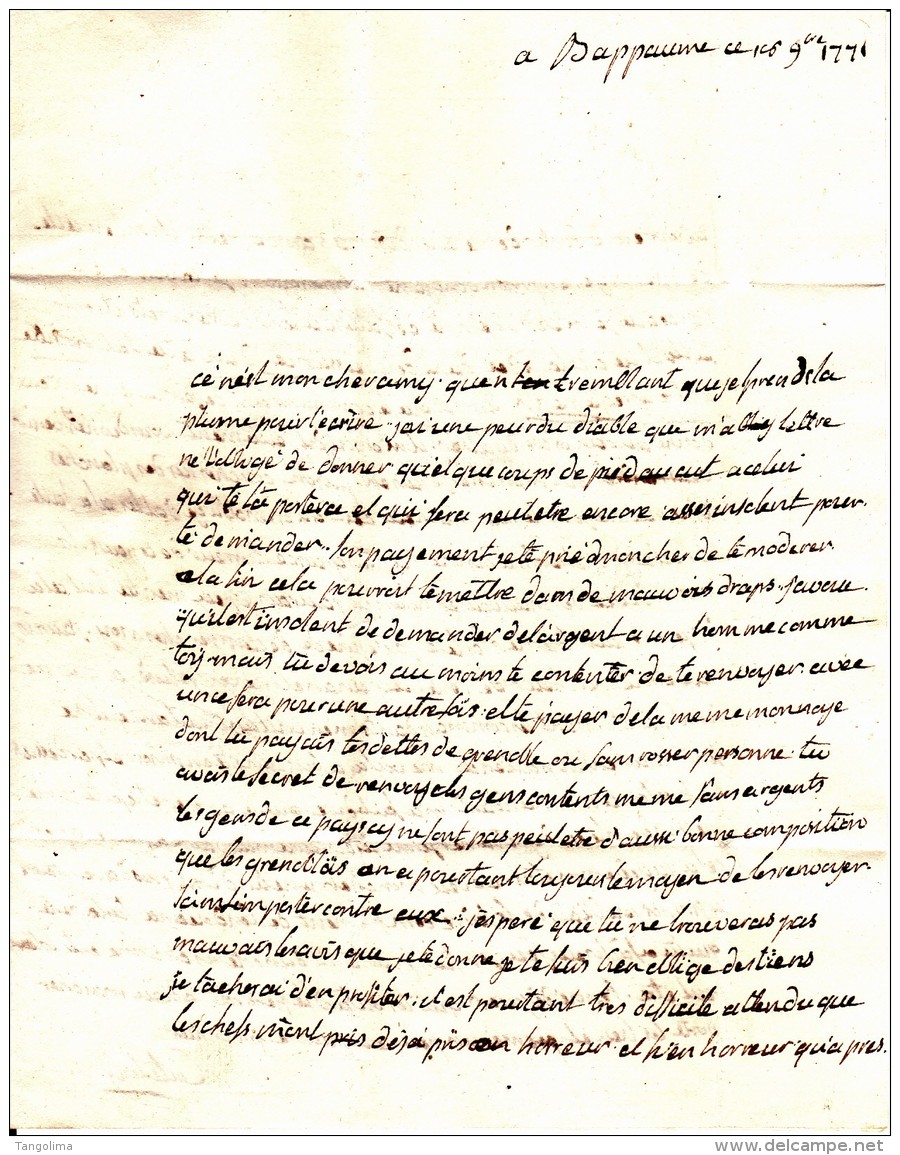 a Bappaume ce 9bre 1771
ce nest mon cher amy quen tremblant que je prens la
plume pour t'ecrire j'ai une peur du diable que ma lettre
ne t'oblige de donner quelque coups de pié au cut a celui
qui te la portera et qui sera peut etre encore asses insolent pour
te demander son payement je te prie mon cher de te moderer
a la fin cela pourroit te mettre dans de mauvois draps j'avoue
quil est insolent de demander de l'argent a un homme comme
toy mais tu devois au moins te contenter de te renvoyer avec
un ce sera pour une autre fois et te payer de la meme monnoye
dont tu payois tes dettes de grenoble ou sans rosser personne tu
avois le secret de renvoyer les gens contents meme sans argents
les gens de ce pays cy ne sont pas peut etre d'aussi bonne composition
que les grenoblois on a pourtant toujours le moyen de les renvoyer
sans s'importer contre eux j'espere que tu ne trouveras pas
mauvois les avis que je te donne je te suis bien obligé des tiens
je tacherai d'en profiter, il est pourtant tres difficile attendu que
les chefs m'ont pris déja pris en horreur et si en horreur qu'apres
Tangolima
delcampe.net